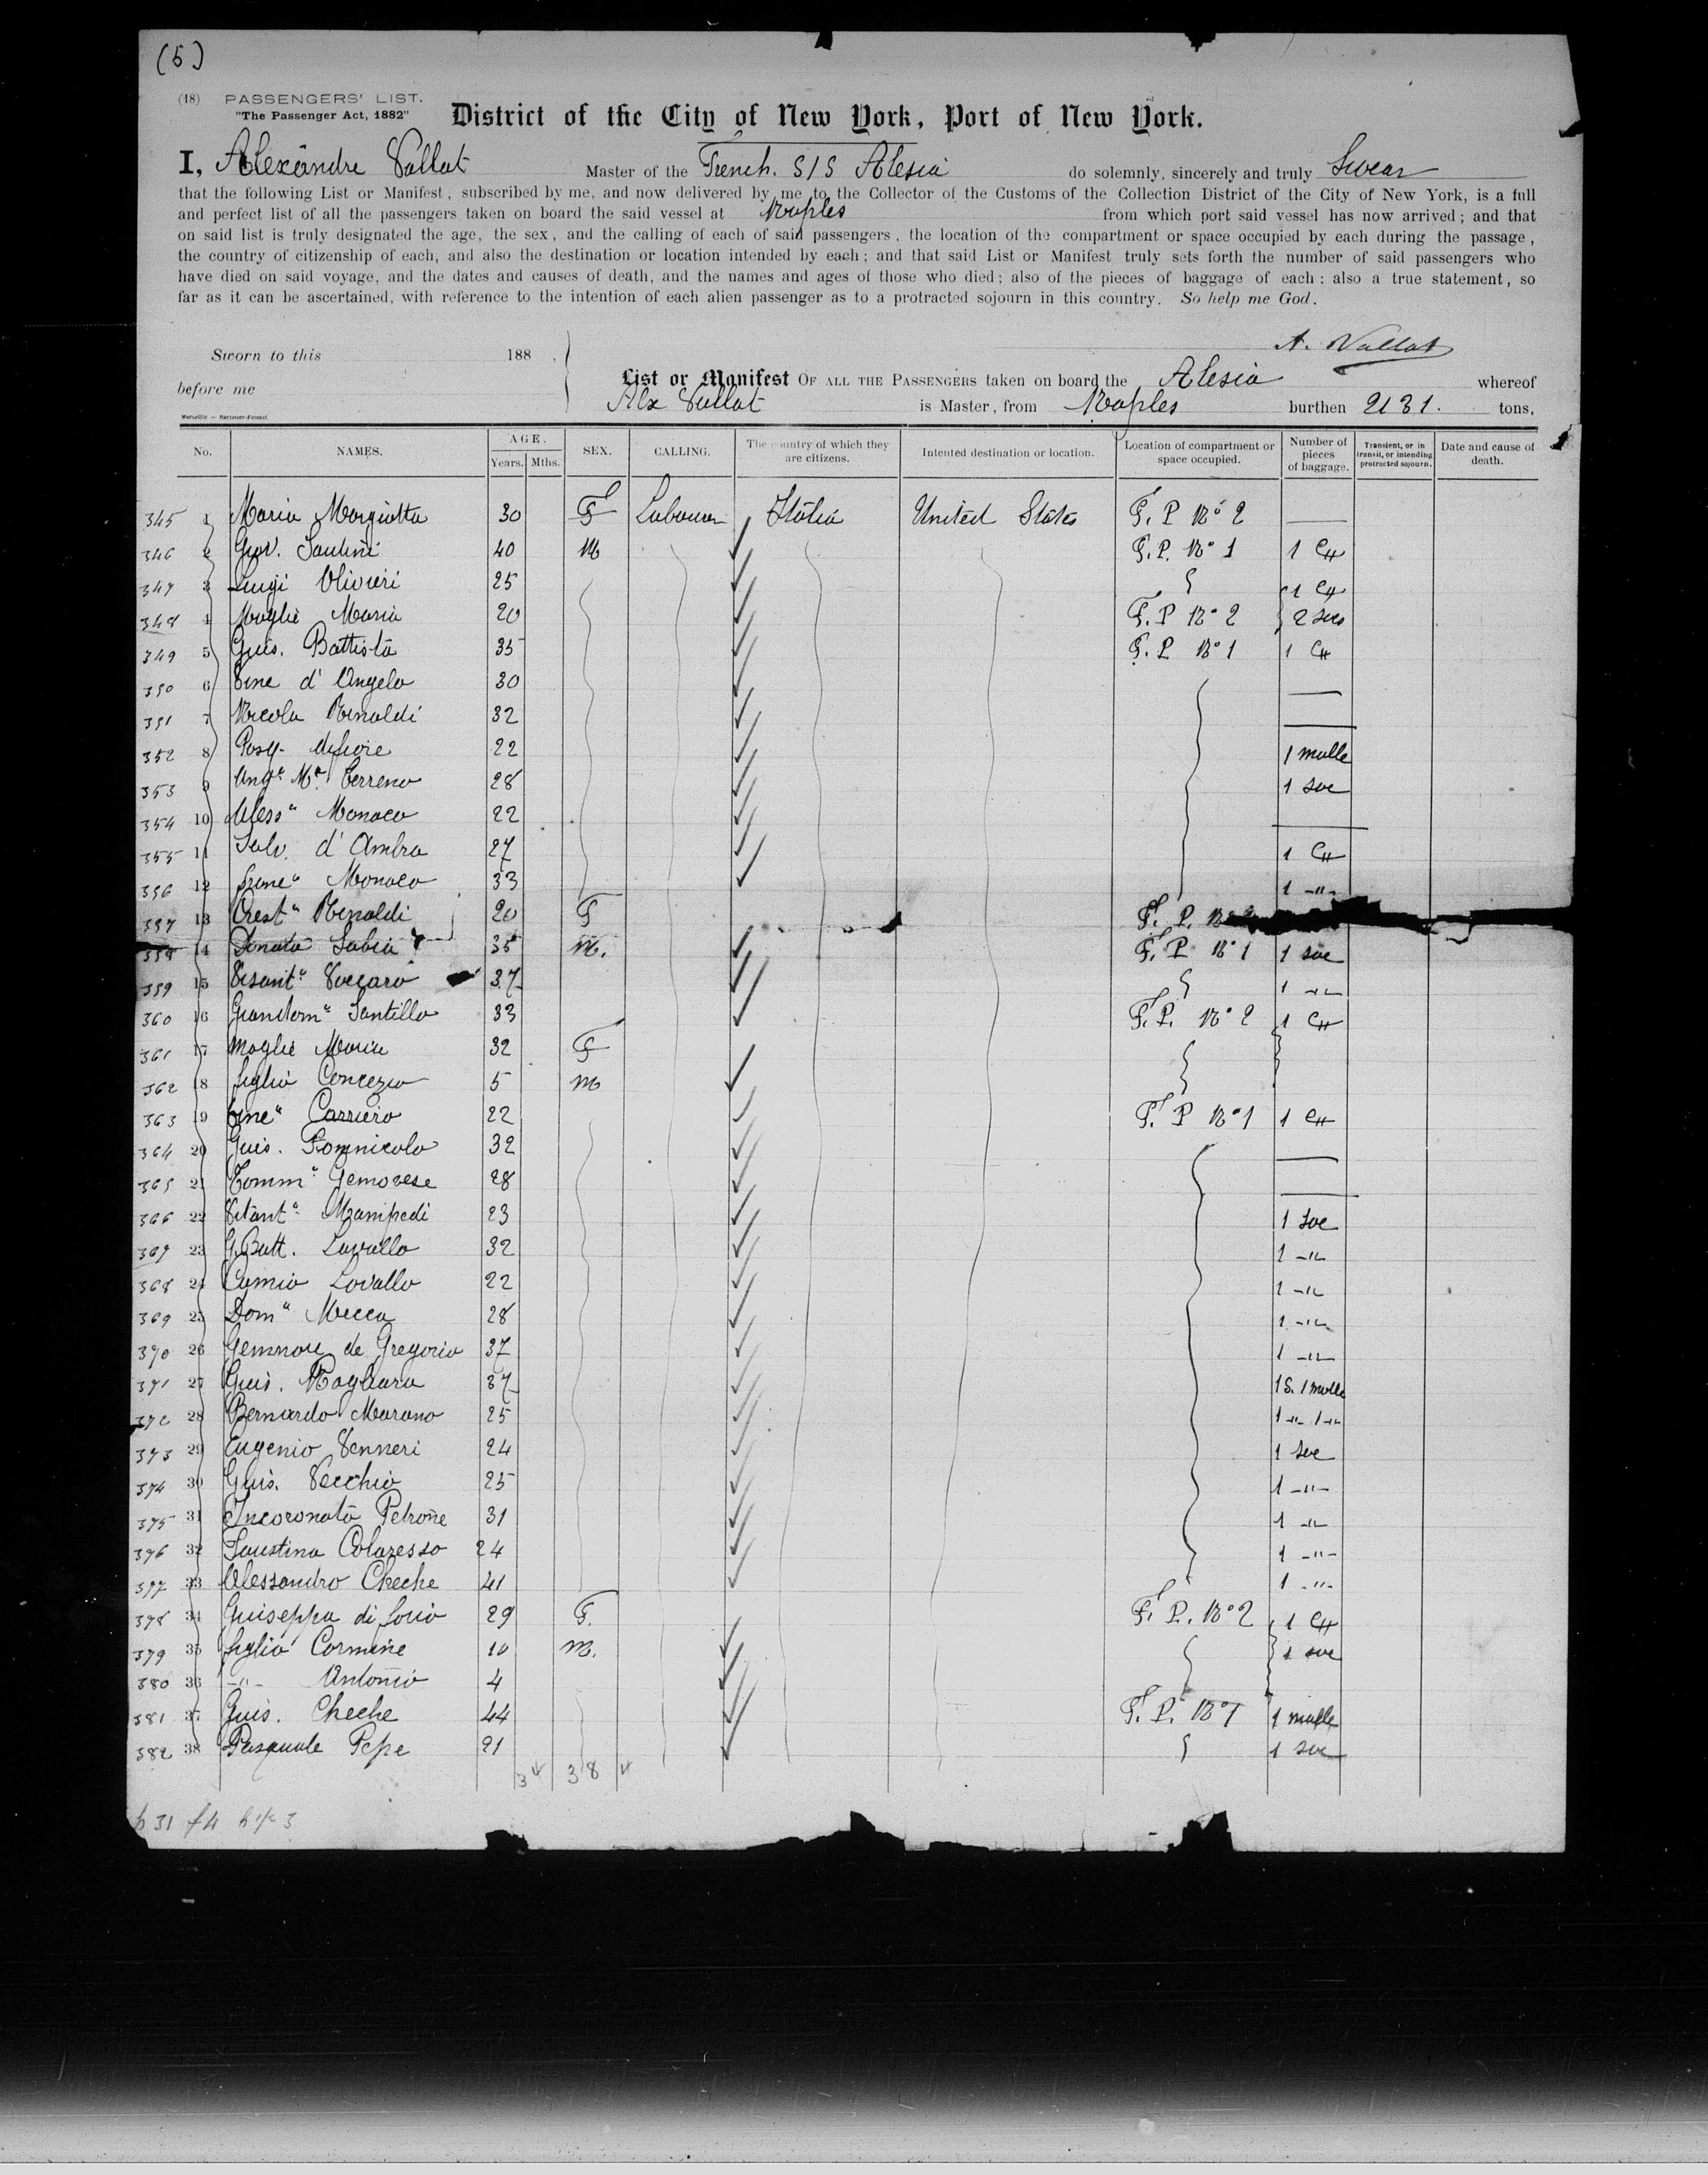 (5)
(18) PASSENGERS' LIST.
"The Passenger Act, 1882"
District of the City of New York, Port of New York.
I, Alexandre Vallat Master of the French. S/S Alesia do solemnly, sincerely and truly Swear
that the following List or Manifest, subscribed by me, and now delivered by me to the Collector of the Customs of the Collection District of the City of New York, is a full
and perfect list of all the passengers taken on board the said vessel at Naples from which port said vessel has now arrived; and that
on said list is truly designated the age, the sex, and the calling of each of said passengers, the location of the compartment or space occupied by each during the passage,
the country of citizenship of each, and also the destination or location intended by each; and that said List or Manifest truly sets forth the number of said passengers who
have died on said voyage, and the dates and causes of death, and the names and ages of those who died; also of the pieces of baggage of each: also a true statement, so
far as it can be ascertained, with reference to the intention of each alien passenger as to a protracted sojourn in this country. So help me God.
A. Vallat
Sworn to this 188 .
before me
List or Manifest OF ALL THE PASSENGERS taken on board the Alesia whereof
Alx Vallat is Master, from Naples burthen 2131. tons,
No. NAMES. AGE. Years. Mths. SEX. CALLING. The country of which they are citizens. Intented destination or location. Location of compartment or space occupied. Number of pieces of baggage. Transient, or in transit, or intending protracted sojourn. Date and cause of death.
345 1 Maria Margiotta 30 F Labourer Italia United States F. P No 2 —
346 2 Giov. Santini 40 M F. P. No 1 1 CH
347 3 Luigi Olivieri 25 1 CH
348 4 Moglie Maria 20 F. P No 2 2 sacs
349 5 Guis. Battista 35 F. P No 1 1 CH
350 6 Vinc d'Angelo 30 —
351 7 Nicola Rinaldi 32 —
352 8 Pasq. 22 1 malle
353 9 Ang. Ma. Terreno 28 1 sac
354 10 Aless. Monaco 22 —
355 11 Salv. d'Ambra 27 1 CH
356 12 Franc. Monaco 33 1 -"-
357 13 Crest. Rinaldi 20 F F. P.
358 14 Donato Sabia 35 M. F. P No 1 1 sac
359 15 Vaccaro 37 1 -"-
360 16 Giandom. Santillo 33 F. P. No 2 1 CH
361 17 Moglie Maria 32 F
362 18 figlio Concezio 5 M
363 19 Carriero 22 F. P No 1 1 CH
364 20 Guis. Pomnicolo 32 —
365 21 Tomm. Genovese 28 —
366 22 23 1 sac
367 23 G. Batt. Lovallo 32 1 -"-
368 24 Lovallo 22 1 -"-
369 25 Dom. Mecca 28 1 -"-
370 26 Gennaro de Gregorio 37 1 -"-
371 27 Guis. Magliara 37 1 S. 1 malle
372 28 Bernardo Marano 25 1 -"- 1 -"-
373 29 Eugenio Venneri 24 1 sac
374 30 Guis. Vecchio 25 1 -"-
375 31 Incoronato Petrone 31 1 -"-
376 32 Faustino Colaresso 24 1 -"-
377 33 Alessandro Cheche 41 1 -"-
378 34 Guiseppa di Iorio 29 F. F. P. No 2 1 CH
379 35 figlio Carmine 10 M. 1 sac
380 36 -"- Antonio 4
381 37 Guis. Cheche 44 F. P. No 1 1 malle
382 38 Pasquale Pepe 21 1 sac
38